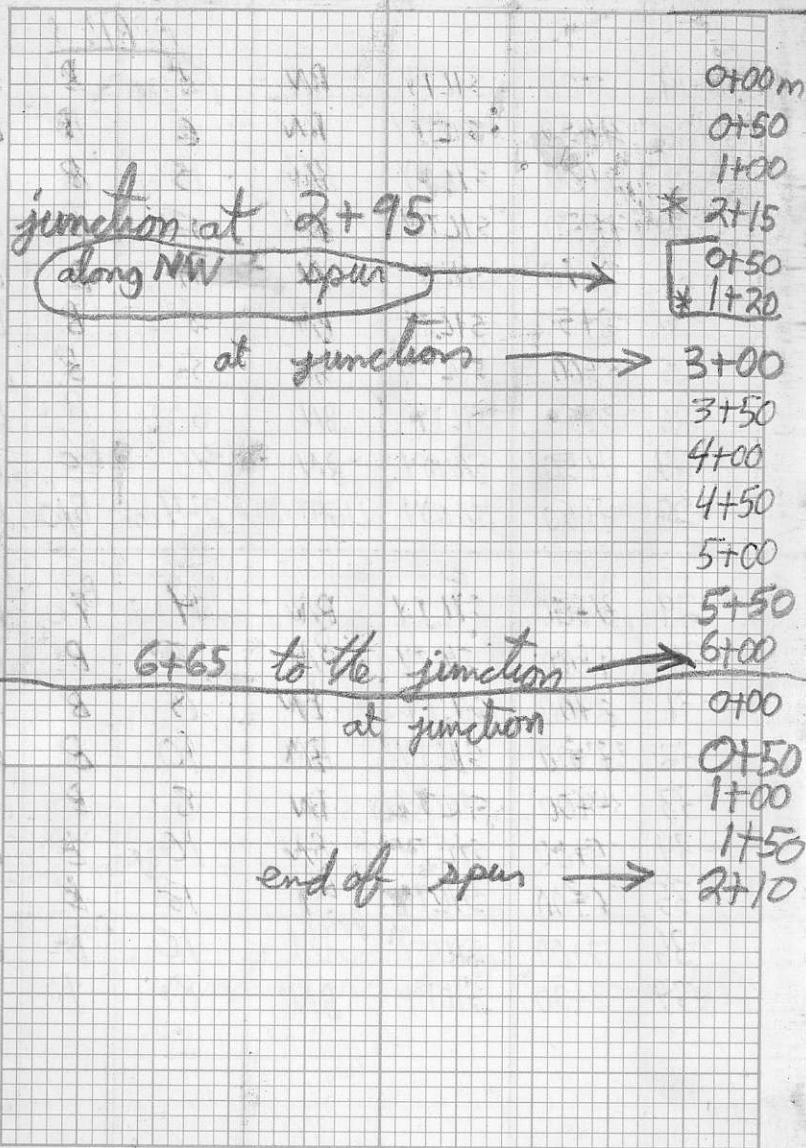 0+00m
0+50
1+00
junction at 2+95 * 2+15
along NW spur → 0+50
* 1+20
at junction → 3+00
3+50
4+00
4+50
5+00
5+50
6+65 to the junction → 6+00
0+00
at junction
0+50
1+00
1+50
end of spur → 2+10